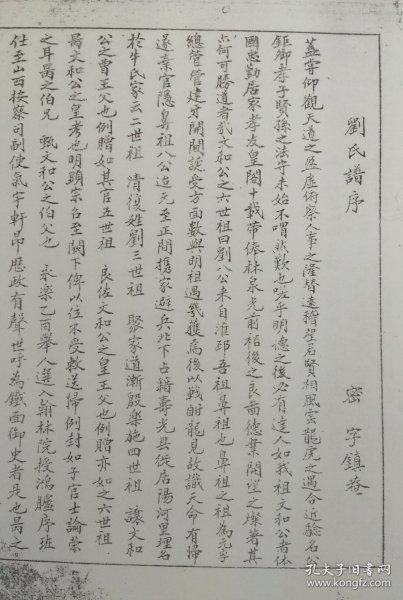 劉氏譜序　密字鎮卷
蓋嘗仰觀天道之盈虛術察人事之隆替遠稽望名賢相風雲龍虎之遇合近驗名公
鉅卿孝子賢孫之法守未始不喟然歎也嗟乎明德之後必有達人如我祖文和公者体
國忠勤居家孝友皇閣十載帶俸林泉光前裕後之良番德業聞望之燦著其
六何可勝道者哉文和公之六世祖曰劉八公來自淮邳吾祖鼻祖也鼻祖之祖為元守
總管管建牙開閫設受方面數與明祖遇幾獲焉後以戰射龍見故識天命有歸
遂棄官隱鼻祖八公迨元至正間携家避兵北下占籍壽光县徙居陽河里埋名
於牛氏家云二世祖　清復姓劉三世祖　聚家道漸殷樂施四世祖　讓文和
公之曾王父也例贈如其官五世祖　良佐文和公之皇王父也例贈亦如之六世祖
昺文和公之皇考也明顕宗召至闕下俾以位不受敕送歸例封如子官士論榮
之耳昺之伯兄　甄文和公之伯父也　永樂乙酉舉人選入翰林院授鴻臚序班
仕至山西按察司副使氣宇軒昂歷政有聲世呼為鐵面御史者是也昺之
孔夫子旧书网
www.kongfz.com